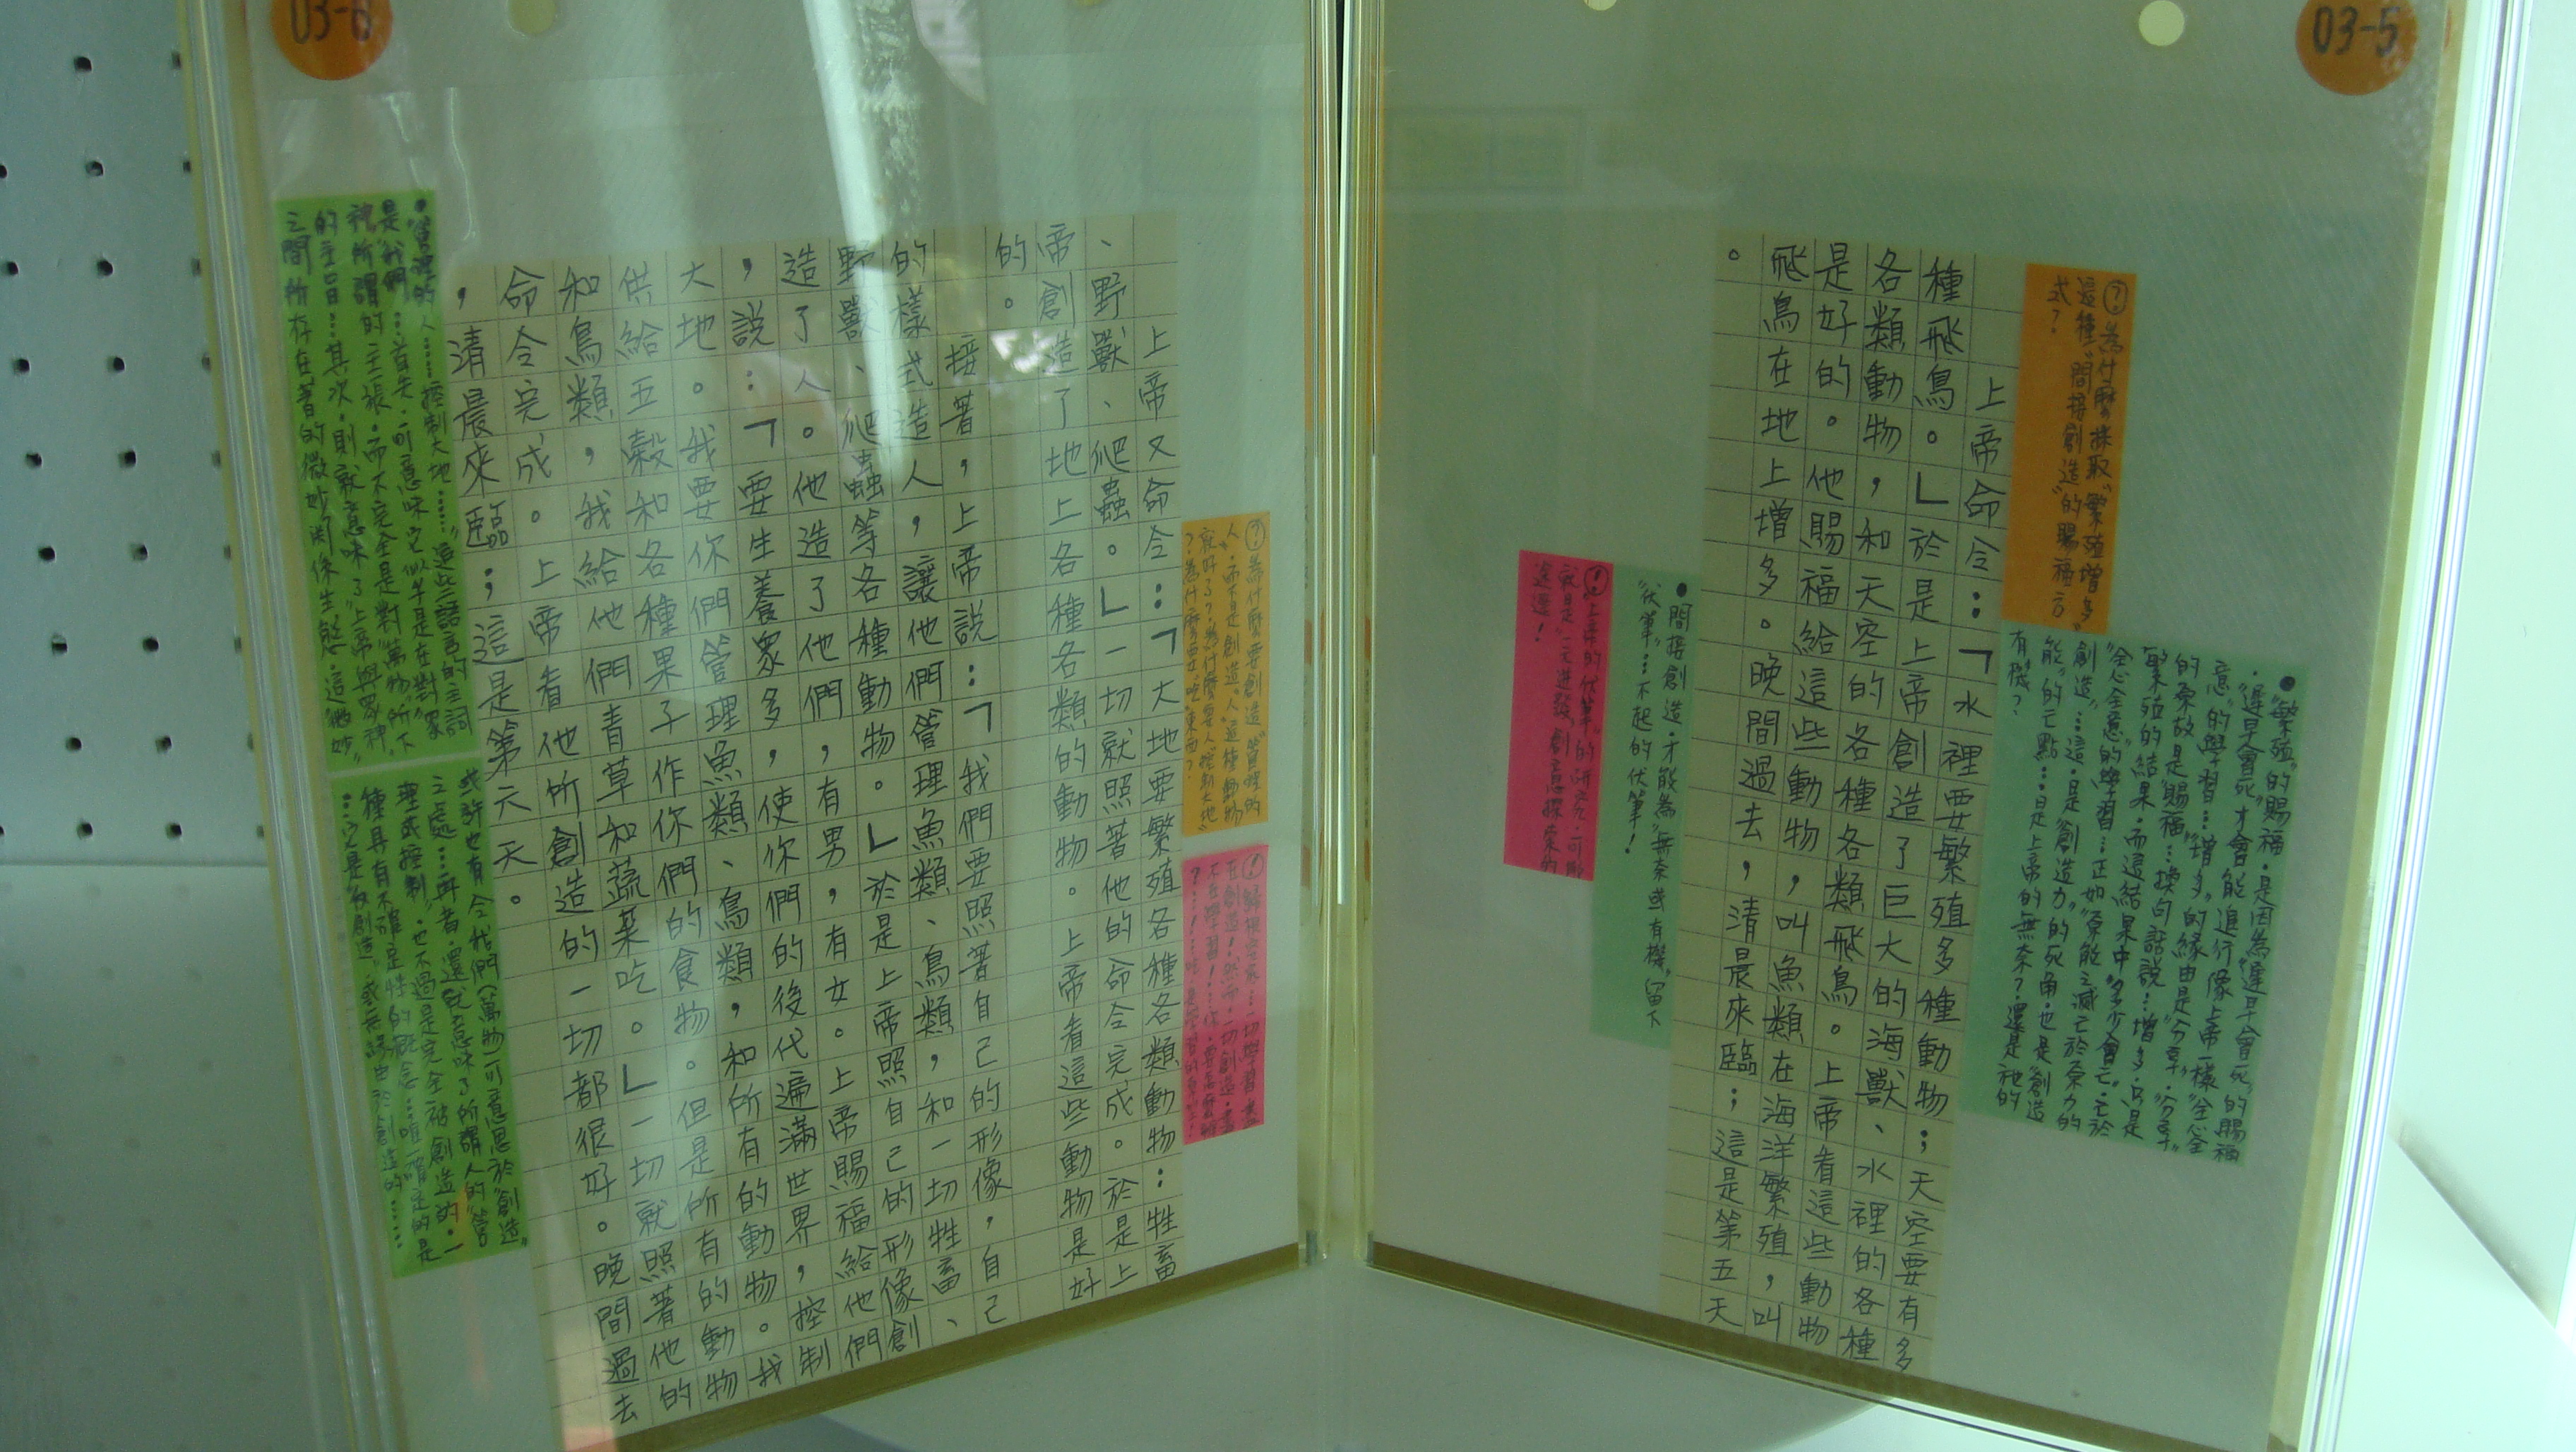 03-5
？為什麼採取“繁殖增多”
這種“間接創造”的賜福方
式？
上帝命令：「水裡要繁殖多種動物；天空要有多
種飛鳥。」於是上帝創造了巨大的海獸、水裡的各種
各類動物，和天空的各種各類飛鳥。上帝看這些動物
是好的。他賜福給這些動物，叫魚類在海洋繁殖，叫
飛鳥在地上增多。晚間過去，清晨來臨；這是第五天
。
●“繁殖”的賜福，是因為“遲早會死”的賜福
，“遲早會死”才會能進行像上帝一樣“全心全
意”的學習…“增多”的緣由是“分享”，“分享”
的緣故是“賜福”…換句話說…增多，只是
“繁殖”的結果，而這結果中“多少會亡”，亡於
“全心全意的學習…正如“原能之滅亡於原力的
創造”…這，是“創造力”的死角，也是“創造
能”的亡點…是上帝的無奈？還是祂的
有機？
●間接創造，才能為“無奈或有機”留下
“伏筆”…不起的伏筆！
！上帝的“伏筆”的研究，可能
就是“一天進發”創意探索的
03-6
上帝又命令：「大地要繁殖各種各類動物：牲畜
、野獸、爬蟲。」一切就照著他的命令完成。於是上
帝創造了地上各種各類的動物。上帝看這些動物是好
的。
接著，上帝說：「我們要照著自己的形像，自己
的樣式造人，讓他們管理魚類、鳥類，和一切牲畜、
野獸、爬蟲等各種動物。」於是上帝照自己的形像創
造了人。他造了他們，有男，有女。上帝賜福給他們
，說：「要生養眾多，使你們的後代遍滿世界，控制
大地。我要你們管理魚類、鳥類，和所有的動物。我
供給五穀和各種果子作你們的食物。但是所有的動物
和鳥類，我給他們青草和蔬菜吃。」一切就照著他的
命令完成。上帝看他所創造的一切都很好。晚間過去
，清晨來臨；這是第六天。
？為什麼要創造“管理的
人”，而不是創造“人”這種動物
就好了？為什麼要人“控制大地”
？為什麼要“吃”東西？
●“管理的人……控制大地……”這些語言的主詞
是“我們”…首先，可意味它似乎是在對“眾
神”所謂的主張，而不完全是對“萬物”所下
的主旨…其次，則就意味了“上帝與眾神”
之間所存在著的微妙關係生態，這“微妙”
或許也有令我們(萬物)可意思於“創造”
之處…再者，還就意味了所謂“人的管
理或控制”，也不過是完全被創造的，一
種具有不確定性的概念…唯一確定的是